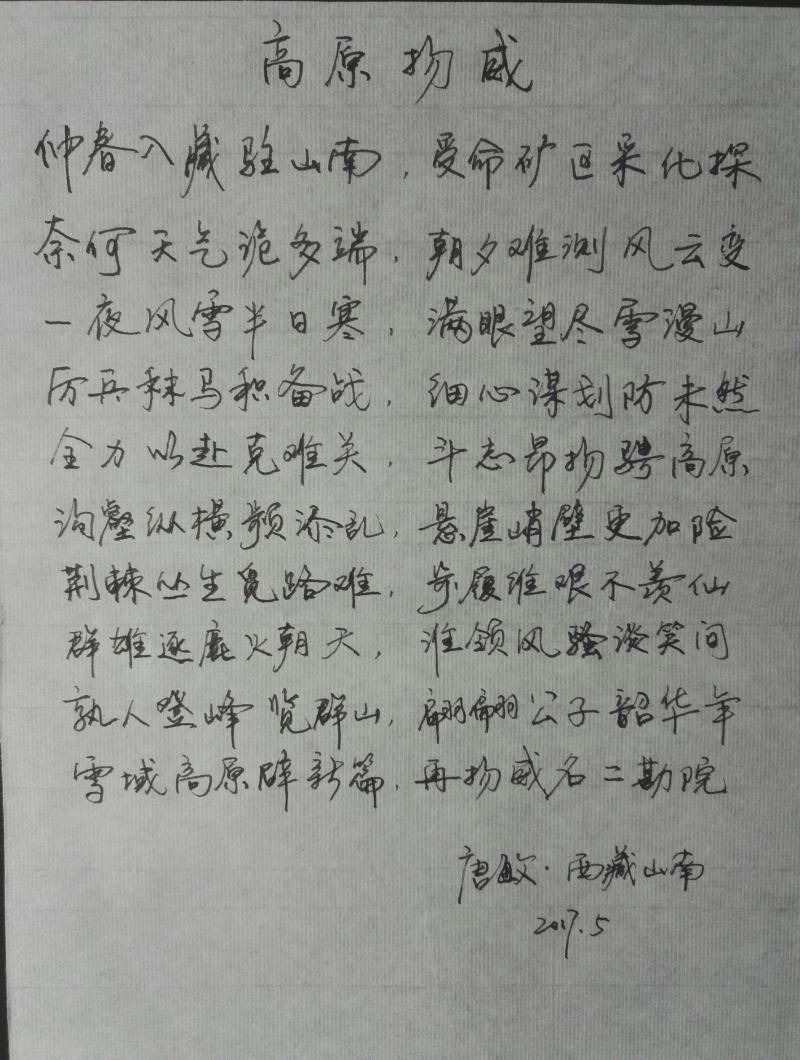 高原扬威
仲春入藏驻山南，受命矿区采化探
奈何天气诡多端，朝夕难测风云变
一夜风雪半日寒，满眼望尽雪漫山
厉兵秣马积备战，细心谋划防未然
全力以赴克难关，斗志昂扬骋高原
沟壑纵横频添乱，悬崖峭壁更加险
荆棘丛生觅路难，步履维艰不羡仙
群雄逐鹿火朝天，谁领风骚谈笑间
孰人登峰览群山，翩翩公子韶华年
雪域高原辟新篇，再扬威名二勘院
唐敏·西藏山南
2017.5